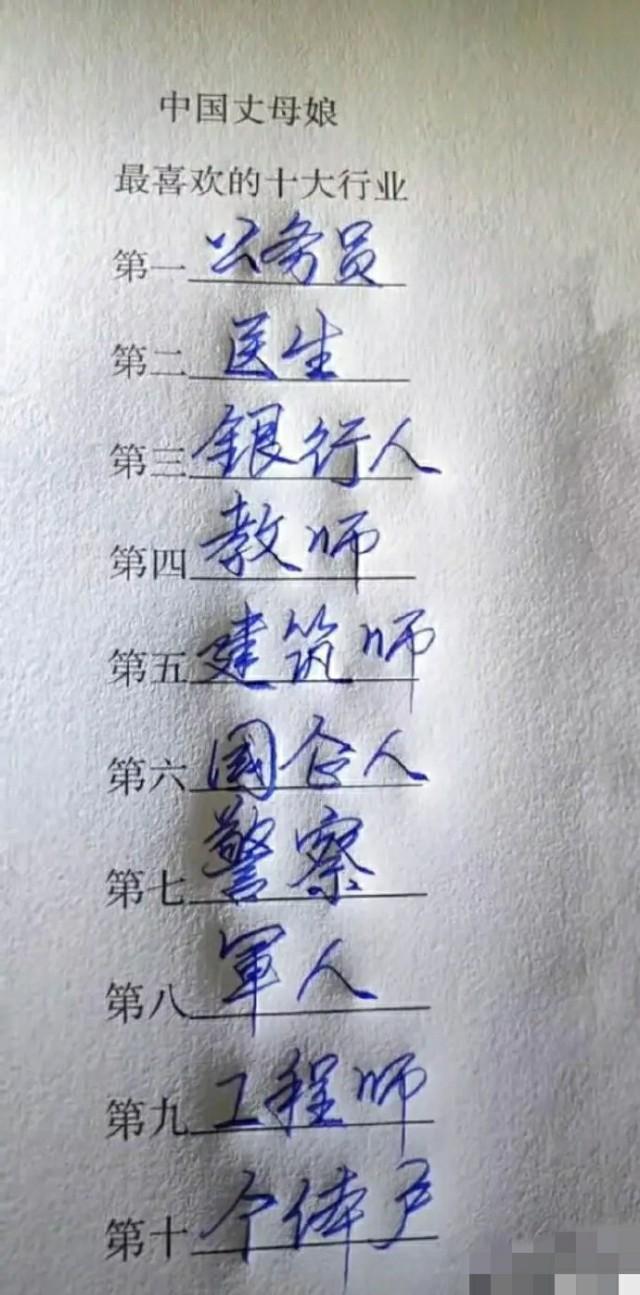 中国丈母娘
最喜欢的十大行业
第一 公务员
第二 医生
第三 银行人
第四 教师
第五 建筑师
第六 国企人
第七 警察
第八 軍人
第九 工程师
第十 个体户